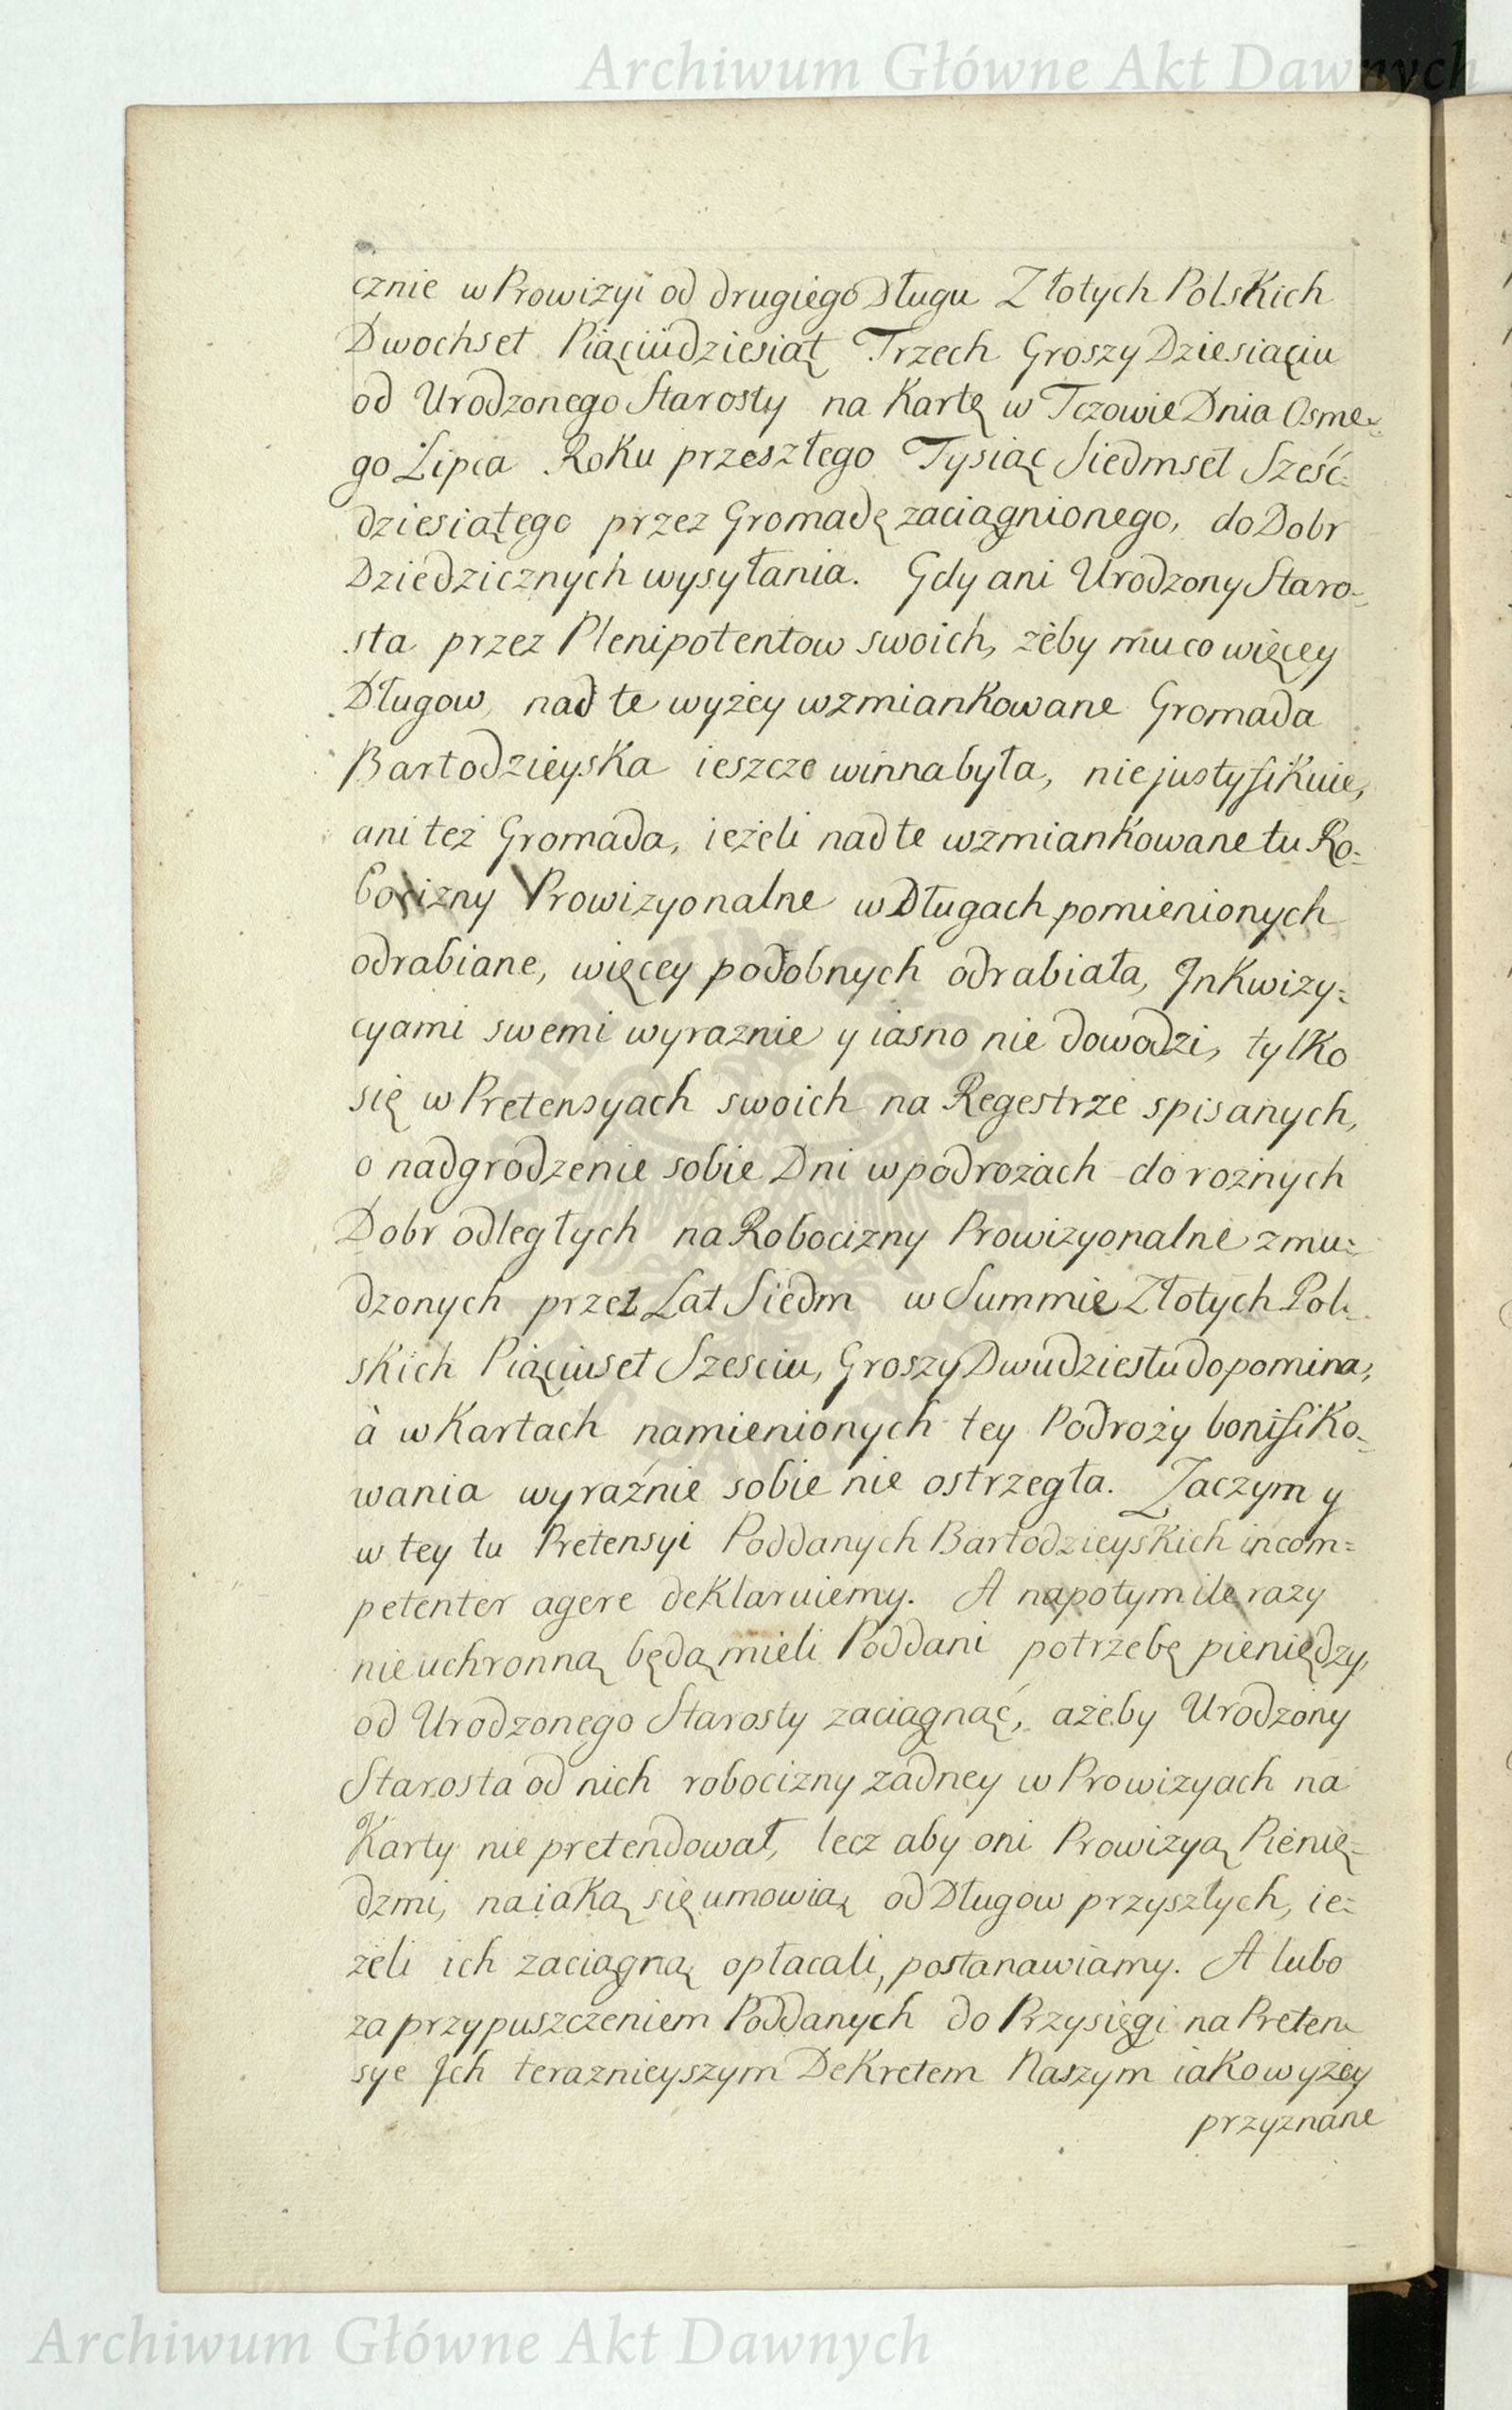 Archiwum Główne Akt Dawnych
cznie w Prowizyi od drugiego Długu Złotych Polskich
Dwochset Piąciudziesiąt Trzech Groszy Dziesiąciu
od Urodzonego Starosty na Kartę w Tczowie Dnia Osme-
go Lipca Roku przeszłego Tysiąc Siedmset Sześć-
dziesiątego przez Gromadę zaciągnionego, do Dobr
Dziedzicznych wysyłania. Gdy ani Urodzony Staro-
sta przez Plenipotentow swoich, żeby mu co więcey
Długow nad te wyżey wzmiankowane Gromada
Bartodzieyska ieszcze winna była, nie justyfikuie,
ani też Gromada, ieżeli nad te wzmiankowane tu Ro-
bocizny Prowizyonalne w Długach pomienionych
odrabiane, więcey podobnych odrabiała, Inkwizy-
cyami swemi wyraznie y iasno nie dowodzi, tylko
się w Pretensyach swoich na Regestrze spisanych,
o nadgrodzenie sobie Dni w podrożach do rożnych
Dobr odległych na Robocizny Prowizyonalne zmu-
dzonych przez Lat Siedm w Summie Złotych Pol-
skich Piąciuset Szesciu, Groszy Dwudziestu dopomina,
à w Kartach namienionych tey Podroży bonifiko-
wania wyraźnie sobie nie ostrzegła. Zaczym y
w tey tu Pretensyi Poddanych Bartodzieyskich incom-
petenter agere deklaruiemy. A napotym ile razy
nieuchronną będą mieli Poddani potrzebę pieniędzy,
od Urodzonego Starosty zaciągnąć, ażeby Urodzony
Starosta od nich robocizny żadney w Prowizyach na
Karty nie pretendował, lecz aby oni Prowizyą Pienię-
dzmi, na iaką się umowią od Długow przyszłych, ie-
żeli ich zaciągną opłacali, postanawiamy. A lubo
za przypuszczeniem Poddanych do Przysięgi na Preten-
sye Ich teraznieyszym Dekretem Naszym iako wyżey
przyznane
Archiwum Główne Akt Dawnych